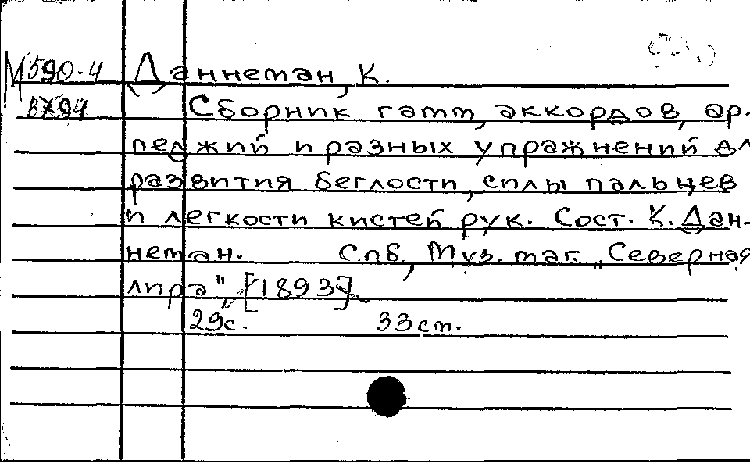 М590-4 Даннеман, К.
Сборник гамм, аккордов, ар-
педжий и разных упражнений дл
развития беглости, силы пальцев
и легкости кистей рук. Сост. К. Дан-
неман. Спб, Муз. маг. „Северная
лира", [1893].
29с. 33см.